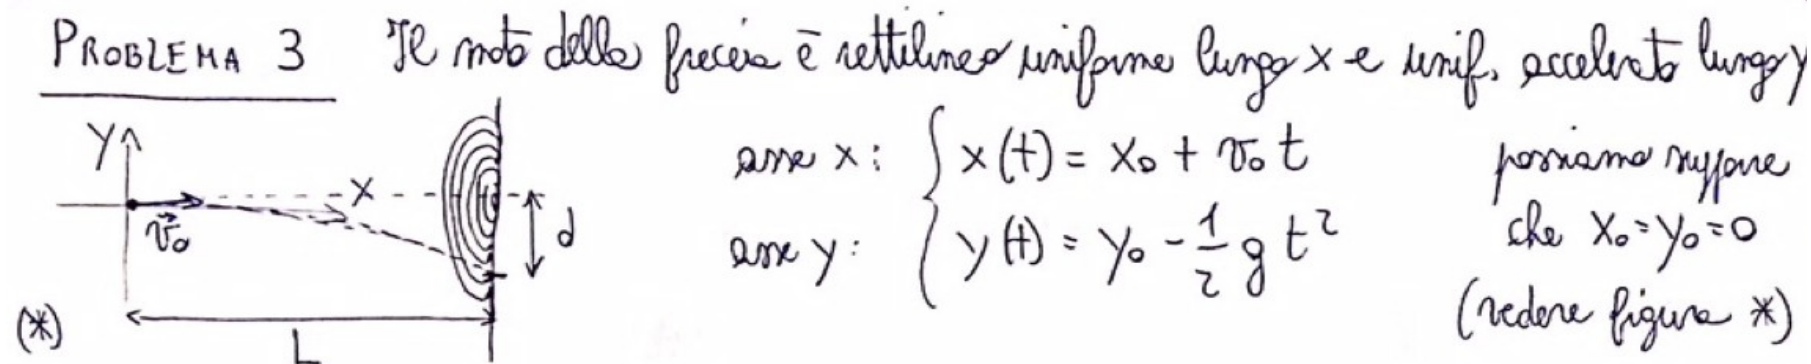 PROBLEMA 3 Il moto della freccia è rettilineo uniforme lungo x e unif. accelerato lungo y
asse x: { x(t) = x₀ + v₀ t
asse y: y(t) = y₀ - 1/2 g t²
possiamo supporre
che x₀ = y₀ = 0
(vedere figura *)
y
x
v⃗₀
d
L
(*)